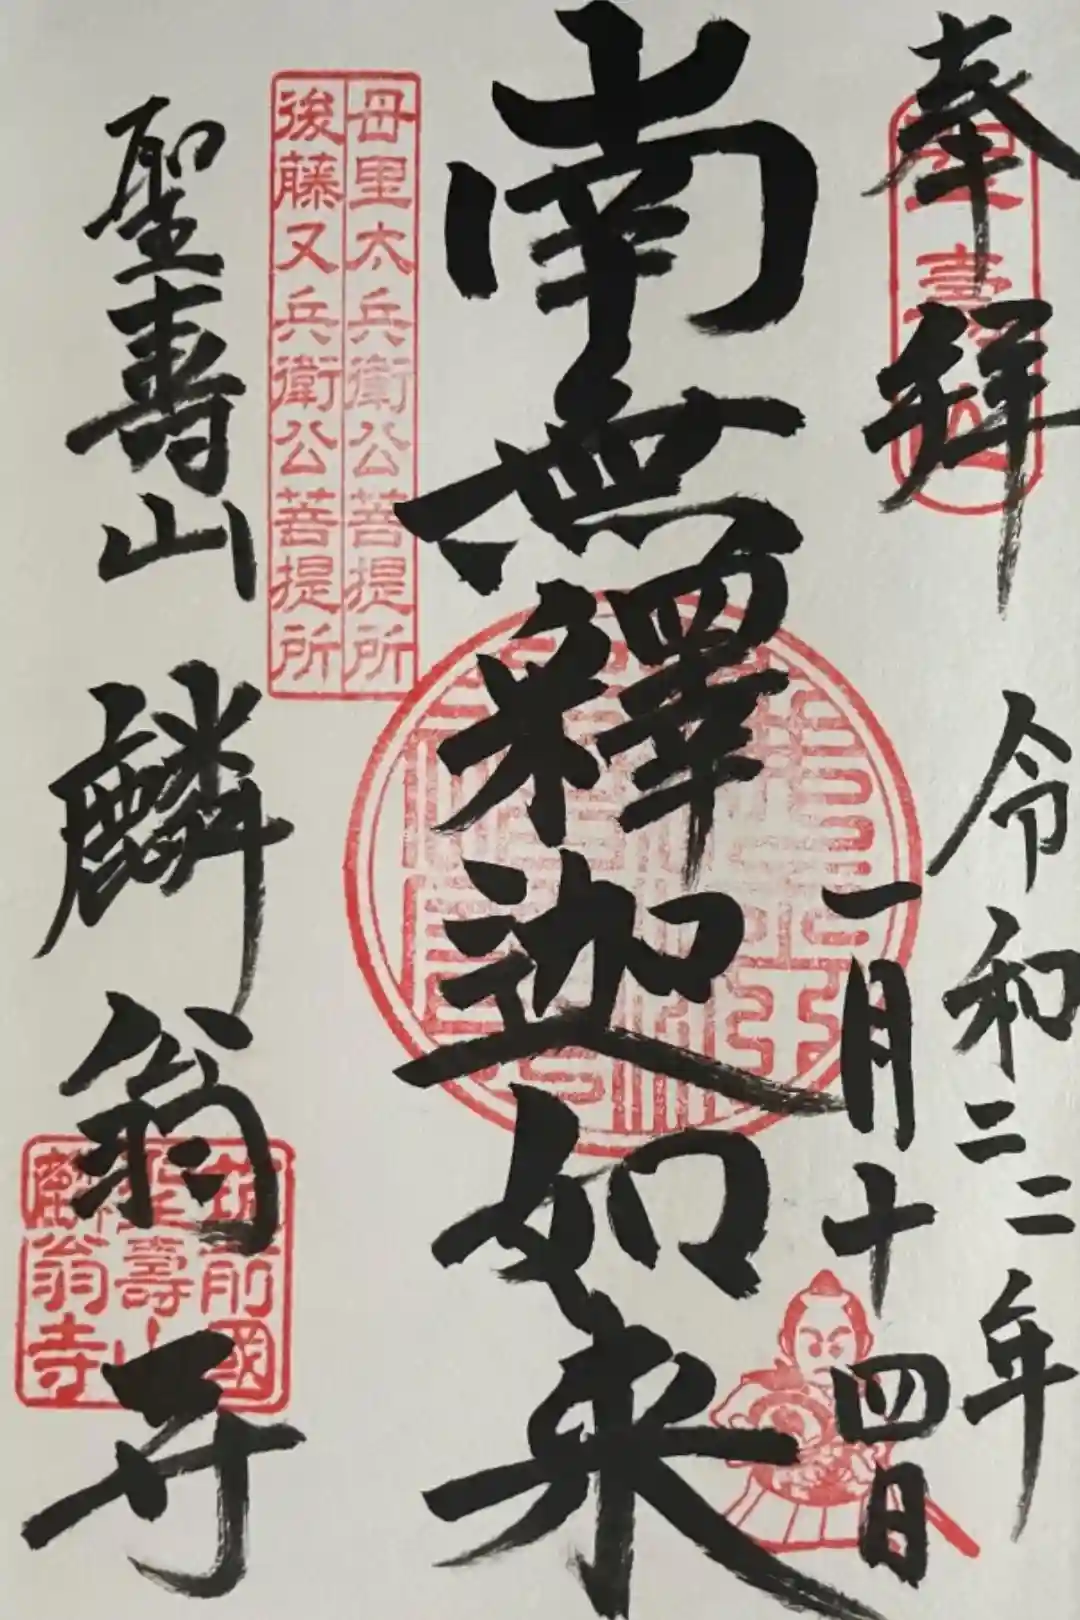 奉拝
聖壽山
令和二二年
一月十四日
南無釋迦如来
母里太兵衛公菩提所
後藤又兵衛公菩提所
聖寿山 麟翁寺
筑前國
聖壽山
麟翁寺